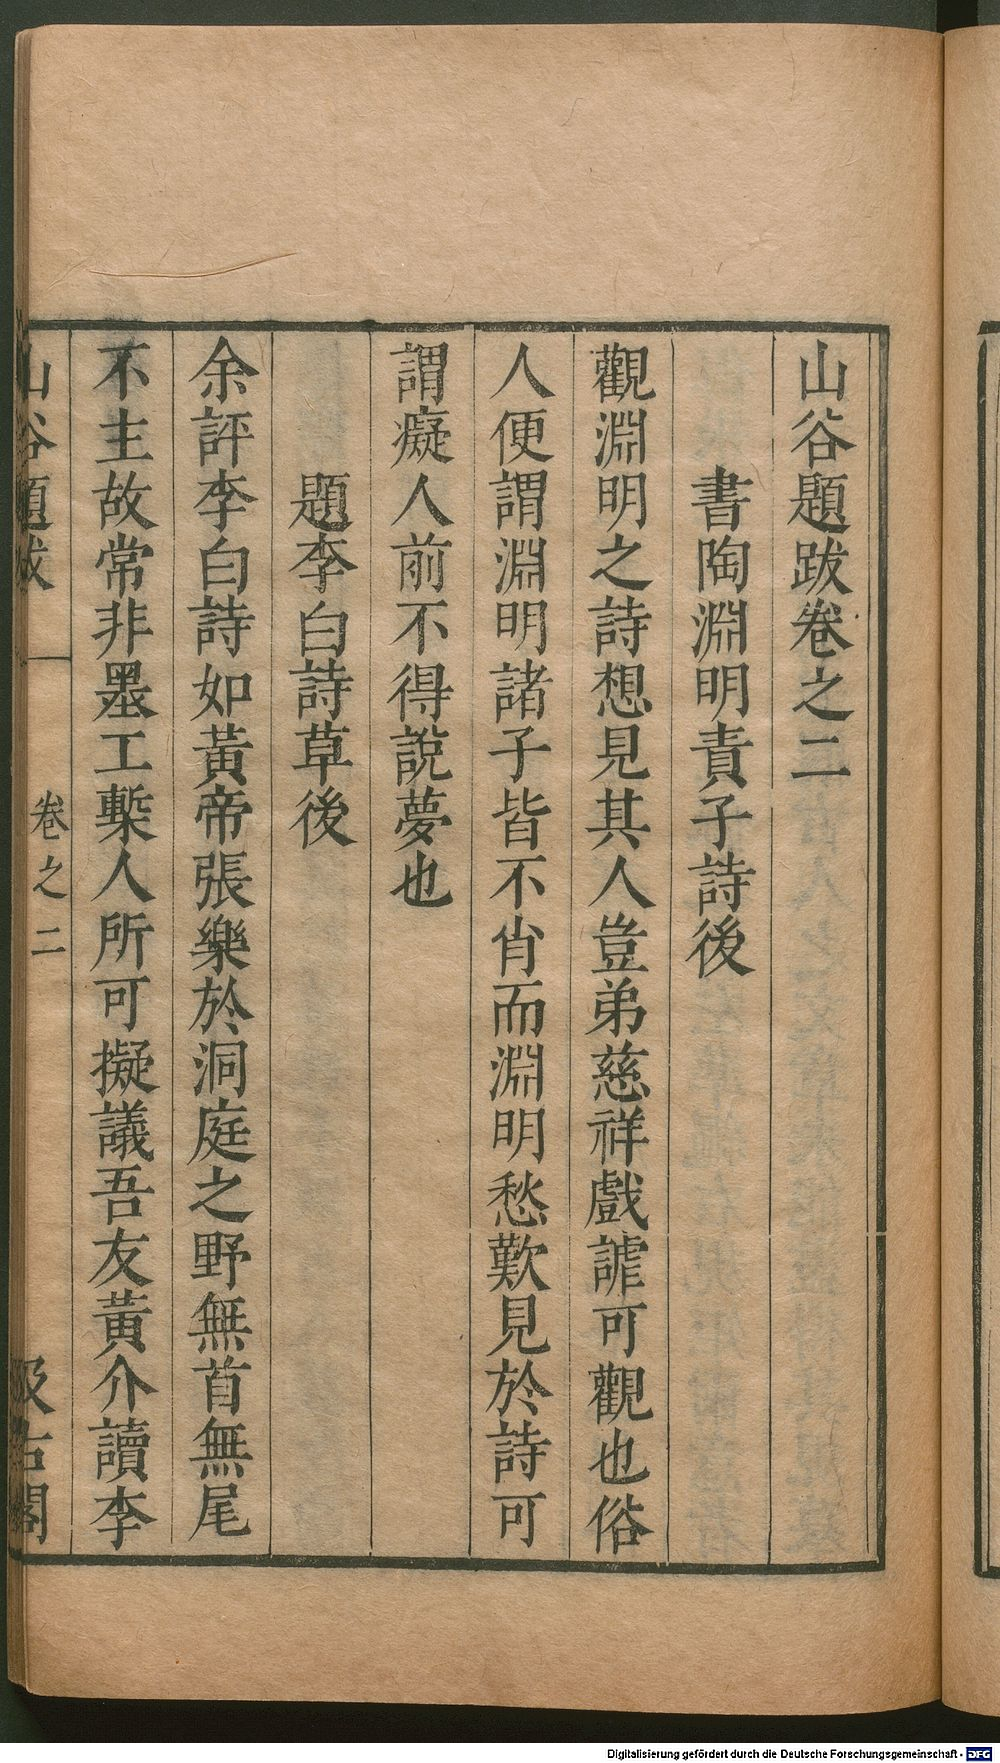 山谷題跋卷之二
書陶淵明責子詩後
觀淵明之詩想見其人豈弟慈祥戲謔可觀也俗
人便謂淵明諸子皆不肖而淵明愁歎見於詩可
謂癡人前不得說夢也
題李白詩草後
余評李白詩如黃帝張樂於洞庭之野無首無尾
不主故常非墨工槧人所可擬議吾友黃介讀李
山谷題跋
卷之二
汲古閣
Digitalisierung gefördert durch die Deutsche Forschungsgemeinschaft - DFG